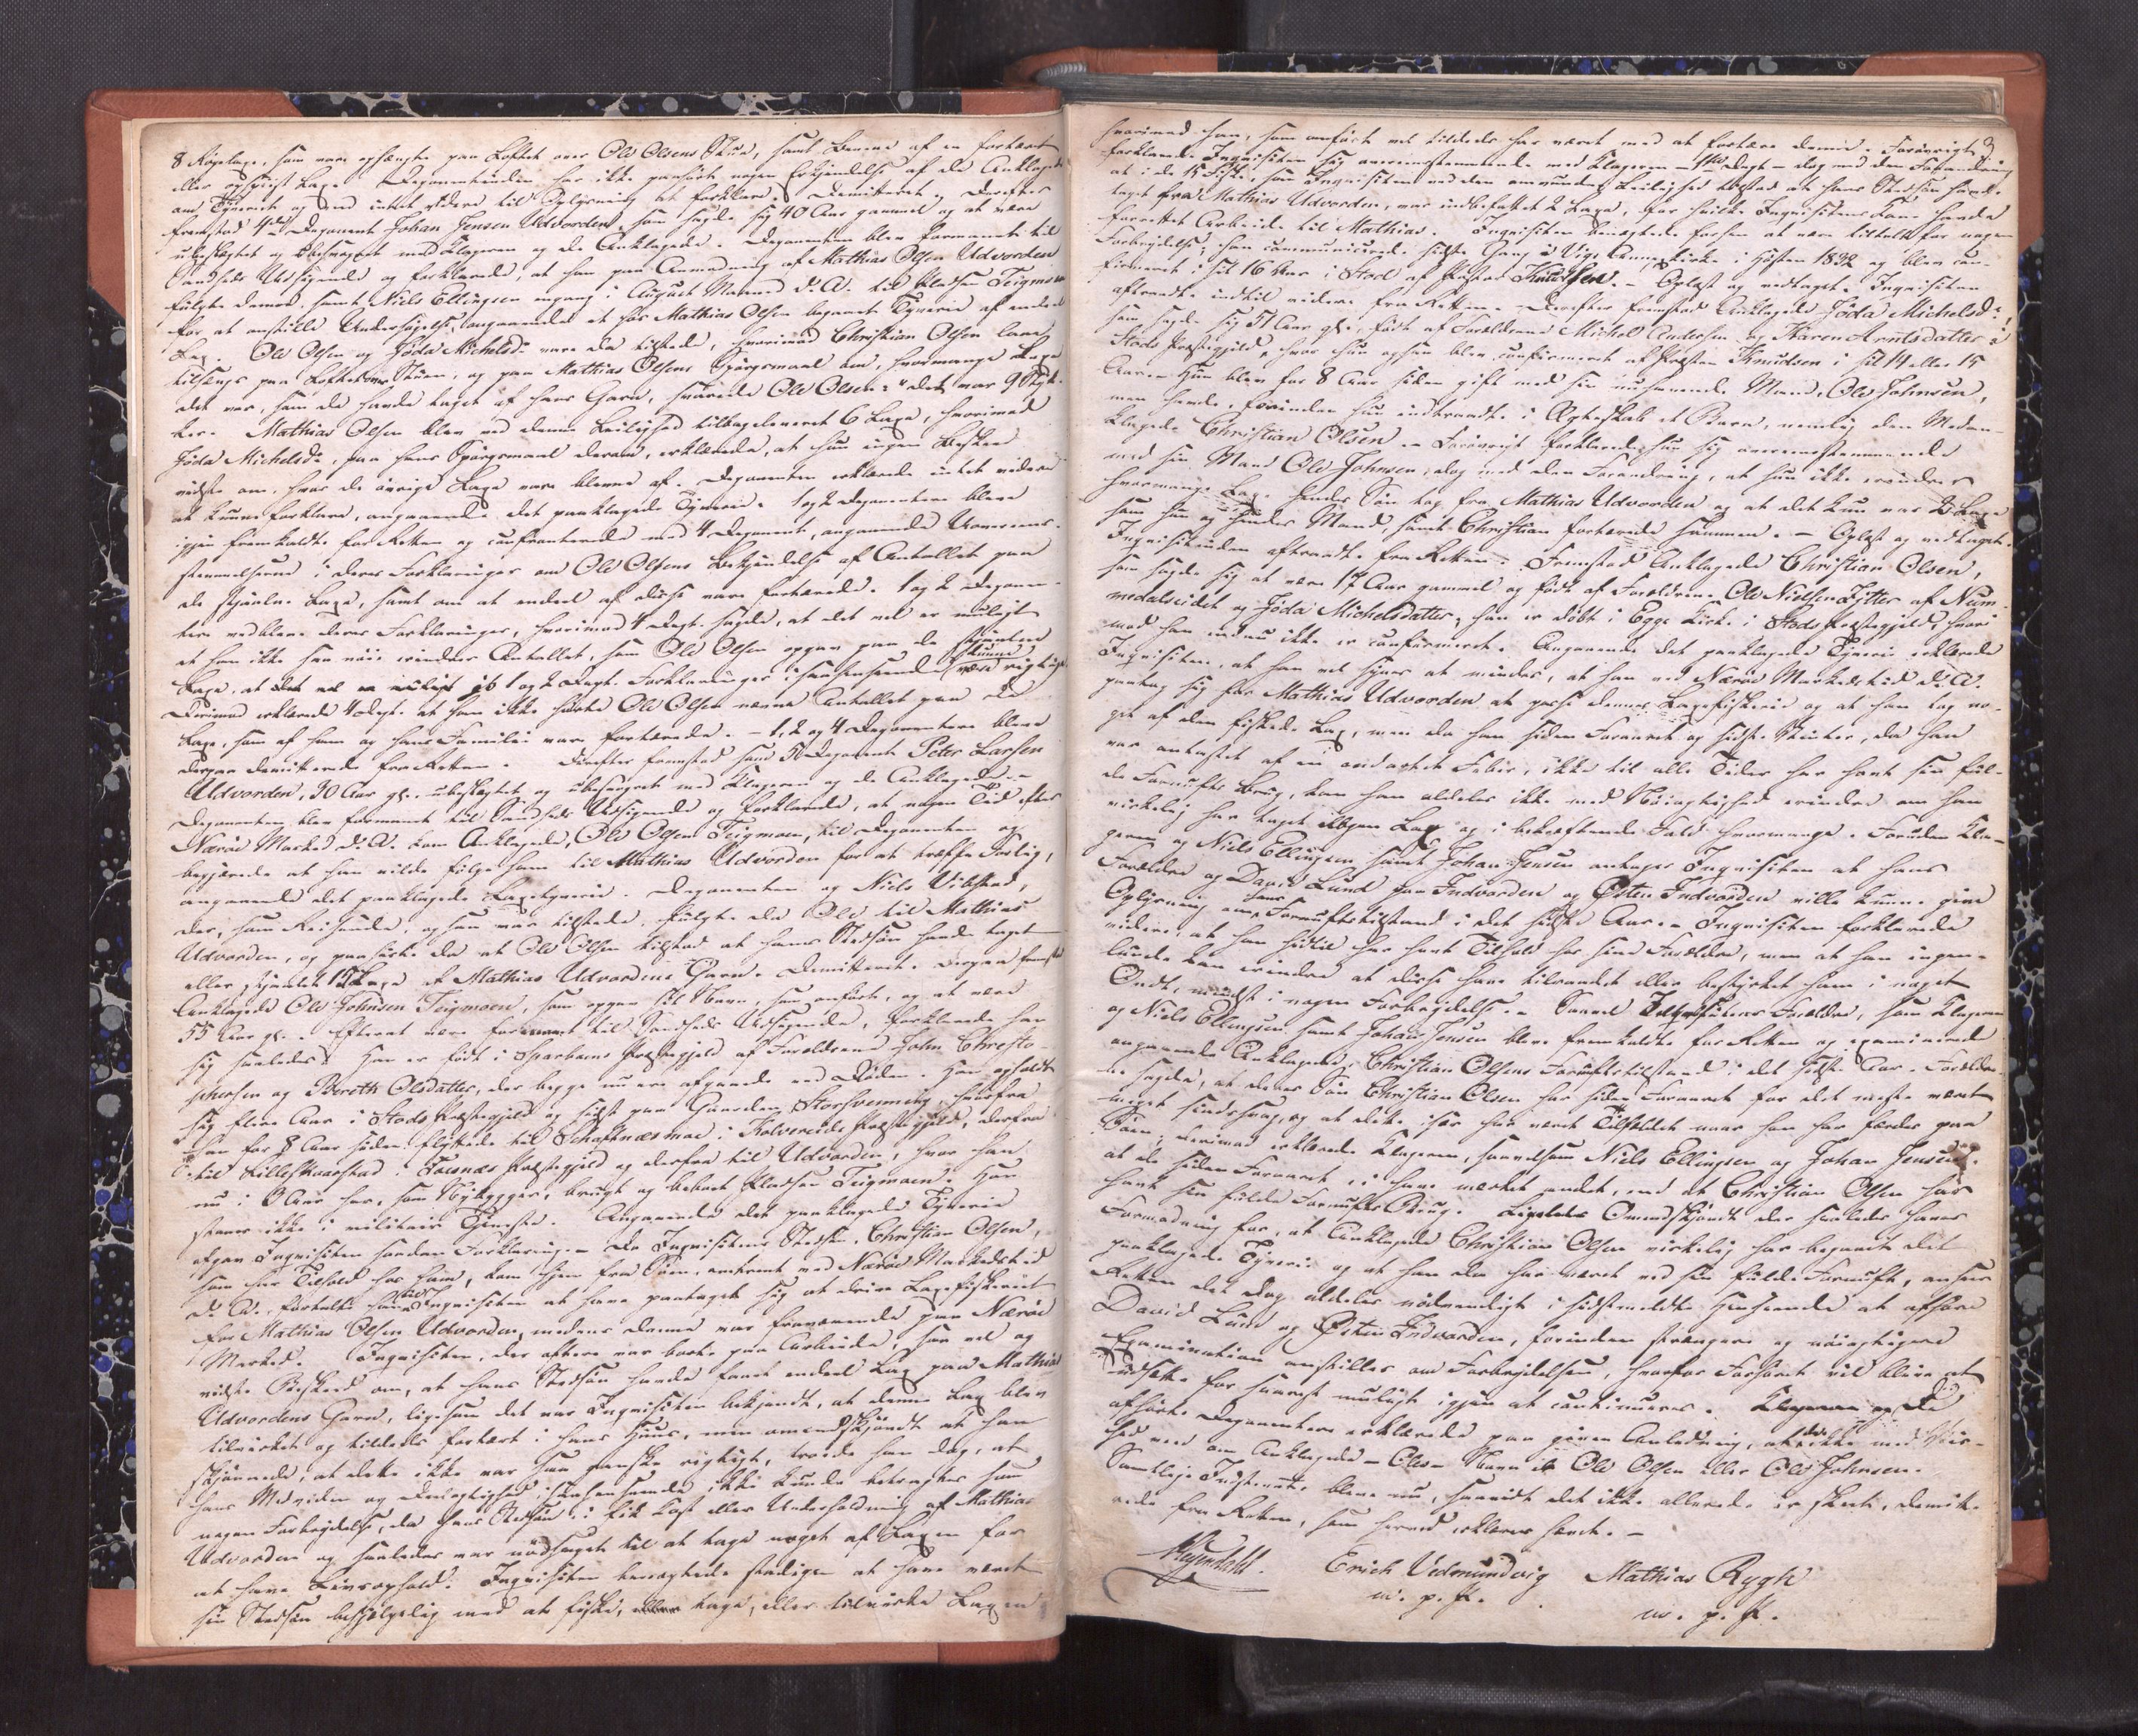 8 Røgelaxe, som vare ophængte paa Loftet over Ole Olsens Stue, samt Benene af en fortæret
eller opspiist Lax. Deponentinden har ikke paahørt nogen Erkjendelse af de Anklagede
om Tyveriet og veed intet videre til Oplysning at forklare. Demitteret. Derefter
fremstod 4de Deponent Johan Jensen Udvorden, som sagde sig 40 Aar gammel og at være
ubeslægtet og ubesvogret med Klageren og de Anklagede. Deponenten blev formanet til
Sandheds Udsigende og forklarede, at han paa Anmodning af Mathias Olsen Udvorden
fulgte denne, samt Niels Ellingsen engang i August Maaned d. A. til Pladsen Teigmoen
for at anstille Undersøgelse, angaaende et hos Mathias Olsen begaaet Tyverie af endeel
Lax. Ole Olsen og Gjøda Michelsdr vare da tilstede, hvorimod Christian Olsen laae
tilsengs paa Loftet over Stuen, og paa Mathias Olsens Spørgsmaal om, hvormange Laxe
det var, som de havde taget af hans Garn, svarede Ole Olsen: "det var 9 Styk-
ker. Mathias Olsen blev ved denne Leilighed tilbageleveret 6 Laxe, hvorimod
Gjøda Michelsdr, paa hans Spørgsmaal derom, erklærede, at hun ingen Besked
vidste om, hvor de øvrige Laxe vare blevne af. Deponenten erklærede intet videre
at kunne forklare, angaaende det paaklagede Tyverie. 1 og 2 Deponentere bleve
igjen fremkaldte for Retten og confronterede med 4 Deponent, angaaende Uoverens-
stemmelserne i deres Forklaringer om Ole Olsens Bekjendelse af Antallet paa
de stjaalne Laxe, samt om at endeel af disse vare fortærede. 1 og 2 Deponen-
tere vedbleve deres Forklaringer, hvorimod 4 Dept. sagde, at det vel er muligt
at han ikke saa nøie erindrer Antallet, som Ole Olsen opgav paa de stjaalne
Laxe, at 1 og 2 Dept. Forklaringer i saa Henseende kunne være rigtige.
Derimod erklærede 4 Dept. at han ikke hørte Ole Olsen nævne Antallet paa de
Laxe, som af ham og hans Familie vare fortærede. – 1, 2 og 4 Deponentere bleve
derpaa demitterede fra Retten. Derefter fremstod som 5te Deponent Peter Larsen
Udvorden, 30 Aar gl. ubeslægtet og ubesvogret med Klageren og de Anklagede. –
Deponenten blev formanet til Sandheds Udsigende og forklarede, at nogen Tid efter
Nærøe Marked d. A. kom Anklagede, Ole Olsen Teigmoen, til Deponenten og
begjærede at han vilde følge ham til Mathias Udvorden for at træffe Forlig,
angaaende det paaklagede Laxetyverie. Deponenten og Niels Vibstad,
der, som Reisende, ogsaa var tilstede, fulgte da Ole til Mathias
Udvorden, og paahørte da at Ole Olsen tilstod at hans Stedsøn havde taget
eller stjaalet 15 Laxe af Mathias Udvordens Garn. Demitteret. Derpaa fremstod
Anklagede Ole Johnsen Teigmoen, som opgav sit Navn, som anført, og at være
55 Aar gl. Efterat være formanet til Sandheds Udsigende, forklarede han
sig saaledes: Han er født i Sparboens Præstegjeld af Forældrene John Christo-
phersen og Bereth Olsdatter, der begge nu ere afgaaede ved Døden. Han opholdt
sig flere Aar i Stods Præstegjeld og sidst paa Gaarden Storhvenning, hvorfra
han for 8 Aar siden flyttede til Schaftnæsmoe i Kolvereids Præstegjeld, derfra
til Lilleskaarstad i Fosnæs Præstegjeld og derfra til Udvorden, hvor han
nu i 3 Aar har, som Nybygger, brugt og beboet Pladsen Teigmoen. Han
staaer ikke i militair Tjeneste. Angaaende det paaklagede Tyverie
afgav Inqvisiten saadan Forklaring. – Da Inqvisitens Stedsøn, Christian Olsen,
som har Tilhold hos ham, kom hjem fra Søen, omtrent ved Nærøe Markedstid
d. A. fortalte han til Inqvisiten at have paataget sig at drive Laxefiskeriet
for Mathias Olsen Udvorden, medens denne var fraværende paa Nærøe
Marked. Inqvisiten, der oftere var borte paa Arbeide, har vel og
vidste Besked om, at hans Stedsøn havde faaet endeel Lax paa Mathias
Udvordens Garn, ligesom det var Inqvisiten bekjendt, at denne Lax blev
tilvirket og tildeels fortært i hans Huus, men omendskjøndt at han
skjønnede, at dette ikke var saa ganske rigtigt, troede han dog, at
hans Medviden og Deelagtighed i saa Henseende ikke kunde betragtes som
nogen Forbrydelse, da hans Stedsøn ei fik Kost eller Underholdning af Mathias
Udvorden og saaledes var nødsaget til at tage noget af Laxen for
at have Livsophold. Inqvisiten benægtede stadigen at have været
sin Stedsøn behjelpelig med at fiske, tage, eller tilvirke Laxen
3
hvorimod han, som anført vel tildeels har været med at fortære denne. Forøvrigt
forklarede Inqvisiten sig overeensstemmende med Klageren – 1ste Dept – dog med den Forandring
at i de 15 Fiske, som Inqvisiten ved den omvundne Leilighed tilstod at hans Stedsøn havde
taget fra Mathias Udvorden, var indbefattet 2 Laxe, for hvilke Inqvisitens Kone havde
forrettet Arbeide til Mathias. Inqvisiten benægtede forhen at være tiltalt for nogen
Forbrydelse; han communicerede sidste Gang i Vigs Annexkirke i Høsten 1832 og blev con-
firmeret i sit 16 Aar i Stod af Præsten Knudssen. – Oplæst og vedtaget. Inqvisiten
aftraadte indtil videre fra Retten. – Derefter fremstod Anklagede Gjøda Michelsdr,
som sagde sig 51 Aar gl., født af Forældrene Michel Andersen og Karen Arntsdatter i
Stods Præstegjeld, hvor hun ogsaa blev confirmeret af Præsten Knudsen i sit 14 eller 15
Aar. – Hun blev for 8 Aar siden gift med sin nuhavende Mand, Ole Johnsen,
men havde, forinden hun indtraadte i Ægteskab et Barn, nemlig den Medan-
klagede Christian Olsen. – Forøvrigt forklarede hun sig overeensstemmende
med sin Mand Ole Johnsen, dog med den Forandring, at hun ikke erindrer
hvormange Laxe hendes Søn tog fra Mathias Udvorden og at det kun var 3 Laxe
som hun og hendes Mand, samt Christian fortærede sammen. – Oplæst og vedtaget.
Inqvisitinden aftraadte fra Retten. Fremstod Anklagede Christian Olsen,
som sagde sig at være 17 Aar gammel og født af Forældrene Ole Nielsen Fytter af Num-
medalseidet og Gjøda Michelsdatter; han er døbt i Egge Kirke i Stods Præstegjeld, hvori-
mod han endnu ikke er confirmeret. Angaaende det paaklagede Tyveri erklærede
Inqvisiten, at han vel synes at mindes, at han ved Nærøe Markedstid d. A.
paatog sig for Mathias Udvorden at passe dennes Laxefiskerie og at han tog no-
get af den fiskede Lax, men da han siden Foraaret og sidste Vinter, da han
var antastet af en ondartet Feber, ikke til alle Tider har havt sin ful-
de Fornufts Brug, kan han aldeles ikke med Nøiagtighed erindre om han
virkelig har taget nogen Lax og i bekræftende Fald hvormange. Foruden Kla-
geren og Niels Ellingsen samt Johan Jensen antager Inqvisiten at hans
Forældre og David Lund paa Indvorden og Østen Indvorden ville kunne give
Oplysning om hans Fornuftstilstand i det sidste Aar. – Inqvisiten forklarede
videre, at han hidtil har havt Tilhold hos sine Forældre, men at han ingen-
lunde kan erindre at disse have tilraadet eller bestyrket ham i noget
Ondt, mindst i nogen Forbrydelse. – Saavel Inqvisitens Forældre, som Klageren
og Niels Ellingsen samt Johan Jensen bleve fremkaldte for Retten og examinerede
angaaende Anklagede, Christian Olsens Fornuftstilstand i det sidste Aar. Forældre-
ne sagde, at deres Søn Christian Olsen har siden Foraaret for det meste været
meget sindssvag, og at dette især har været Tilfældet naar han har færdes paa
Søen; derimod erklærede Klageren, saavelsom Niels Ellingsen og Johan Jensen,
at de siden Foraaret ei have mærket andet, end at Christian Olsen har
havt sin fulde Fornufts Brug. Omendskjøndt der saaledes haves
Formodning for, at Anklagede Christian Olsen virkelig har begaaet det
paaklagede Tyverie og at han da har været ved sin fulde Fornuft, anseer
Retten det dog aldeles nødvendigt i sidstmeldte Henseende at afhøre
David Lund og Østen Indvorden, forinden strængere og nøiagtigere
Examination anstilles om Forbrydelsen, hvorfor Forhøret vil blive at
udsætte for snarest muligt igjen at continueres. De
afhørte Deponentere erklærede paa given Anledning, at de ikke med Vis-
hed veed om Anklagede – Oles – Navn er Ole Olsen eller Ole Johnsen.
Samtlige Indstevnte bleve nu, saavidt det ikke allerede er skeet, demitte-
rede fra Retten, som herved erklæres hævet. –
Erich Vedmundvig Mathias Rygh
m. p. P. m. p. P.